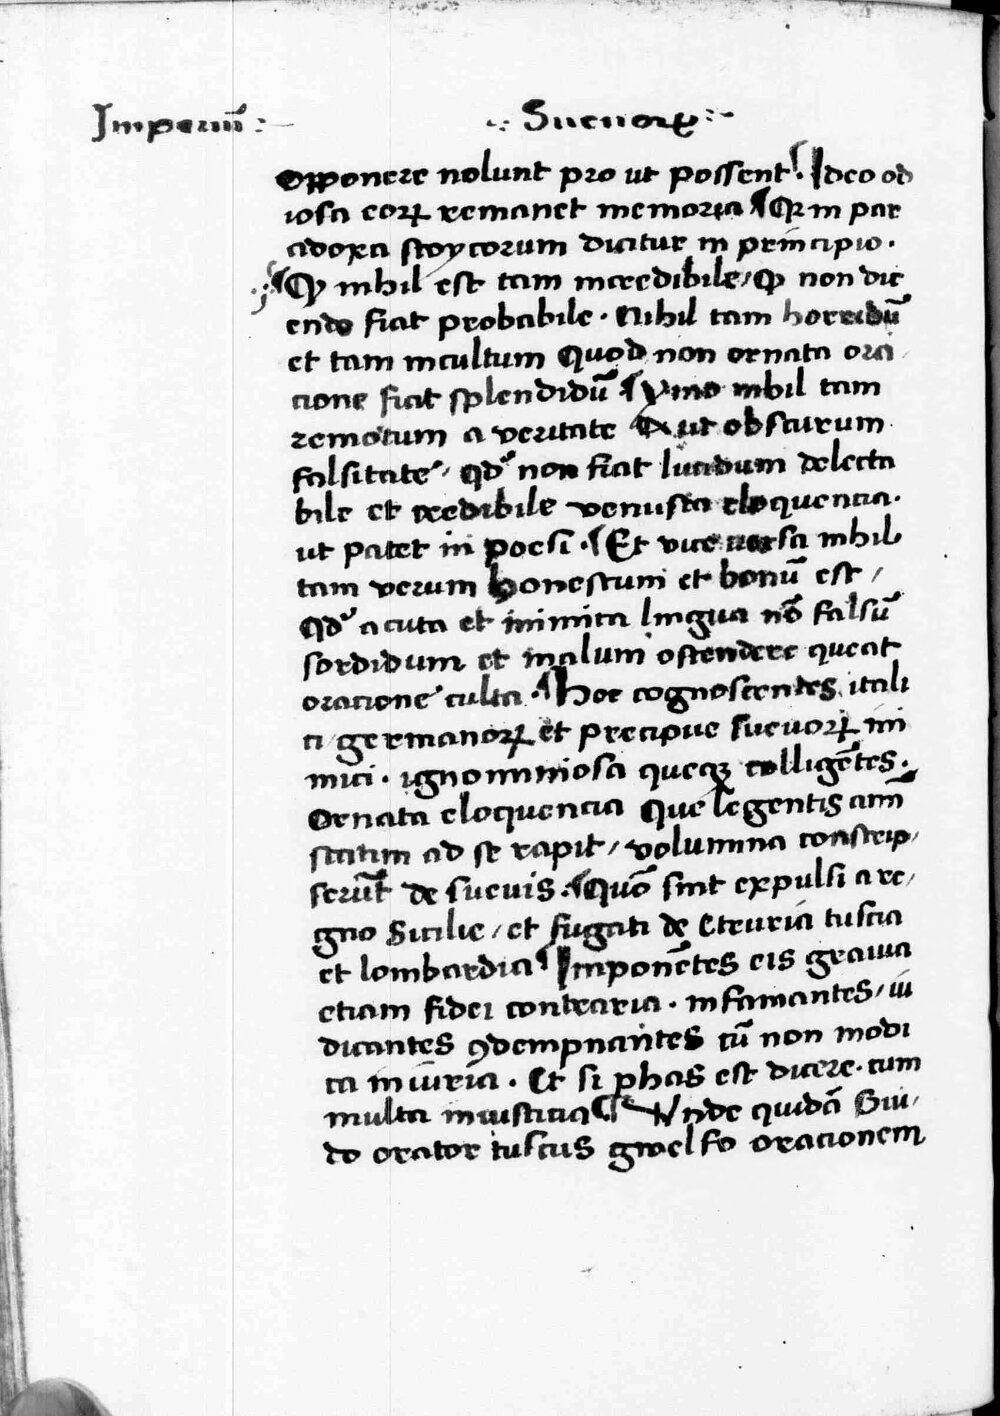 Imperiū ∙:∙ ∙:∙ Sueuorꝝ ∙:∙
opponere nolunt pro ut possent. ¶ Ideo od
iosa eorꝝ remanet memoria ¶ Qꝛ in par
adoxa stoycorum dicitur in principio.
¶ Qꝫ nihil est tam incredibile/ qꝫ non dic
endo fiat probabile. Nihil tam horridū
et tam incultum Quod non ornata ora
cione fiat splendidū ¶ Ymo nihil tam
remotum a veritate Aut obscurum
falsitate/ qd' non fiat lucidum delecta
bile et credibile venusta eloquencia.
ut patet in poesi. ¶ Et vice versa nihil
tam verum honestum et bonū est /
Qd' acuta et inimica lingua nō falsū
sordidum et malum ostendere queat
oracione culta. ¶ Hoc cognoscentes itali
ci germanorꝝ et precipue sueuorꝝ ini
mici. ignominiosa queqꝫ colligētes.
Ornata eloquencia Que legentis aīm
statim ad se rapit/ volumina conscrip/
serūt de sueuis. ¶ Quō sint expulsi a re/
gno Sicilie/ et fugati de Etruria tuscia
et lombardia ¶ Imponētes eis grauia
etiam fidei contraria. infamantes/ iu
dicantes ꝯdempnantes cū non modi
ca iniuria. Et si phas est dicere. cum
multa iniusticia ¶ Vnde quidā Gwi/
do orator tuscus gwelfo oracionem